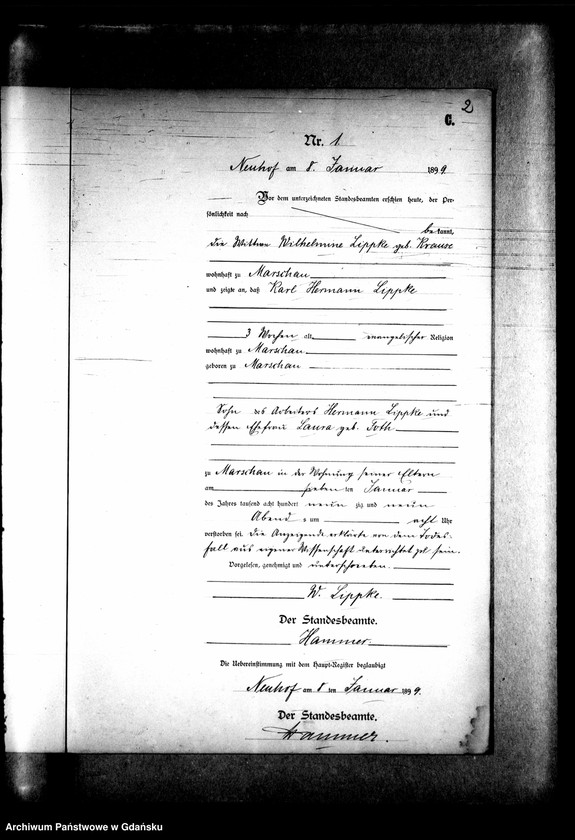 2
C.
Nr. 1
Neuhof am 8. Januar 1899.
Vor dem unterzeichneten Standesbeamten erschien heute, der Per-
sönlichkeit nach
bekannt,
die Wittwe Wilhelmine Lippke geb. Krause
wohnhaft zu Marschau
und zeigte an, daß Karl Hermann Lippke
3 Wochen alt, evangelischer Religion
wohnhaft zu Marschau
geboren zu Marschau
Sohn des Arbeiters Hermann Lippke und
dessen Ehefrau Laura geb. Toth
zu Marschau in der Wohnung seiner Eltern
am sieben ten Januar
des Jahres tausend acht hundert neun zig und neun
Abend s um acht Uhr
verstorben sei. Die Anzeigende erklärte von dem Todes-
fall aus eigener Wissenschaft unterrichtet zu sein.
Vorgelesen, genehmigt und unterschrieben.
W. Lippke.
Der Standesbeamte.
Hammer.
Die Uebereinstimmung mit dem Haupt-Register beglaubigt
Neuhof am 8 ten Januar 1899.
Der Standesbeamte.
Hammer.
Archiwum Państwowe w Gdańsku